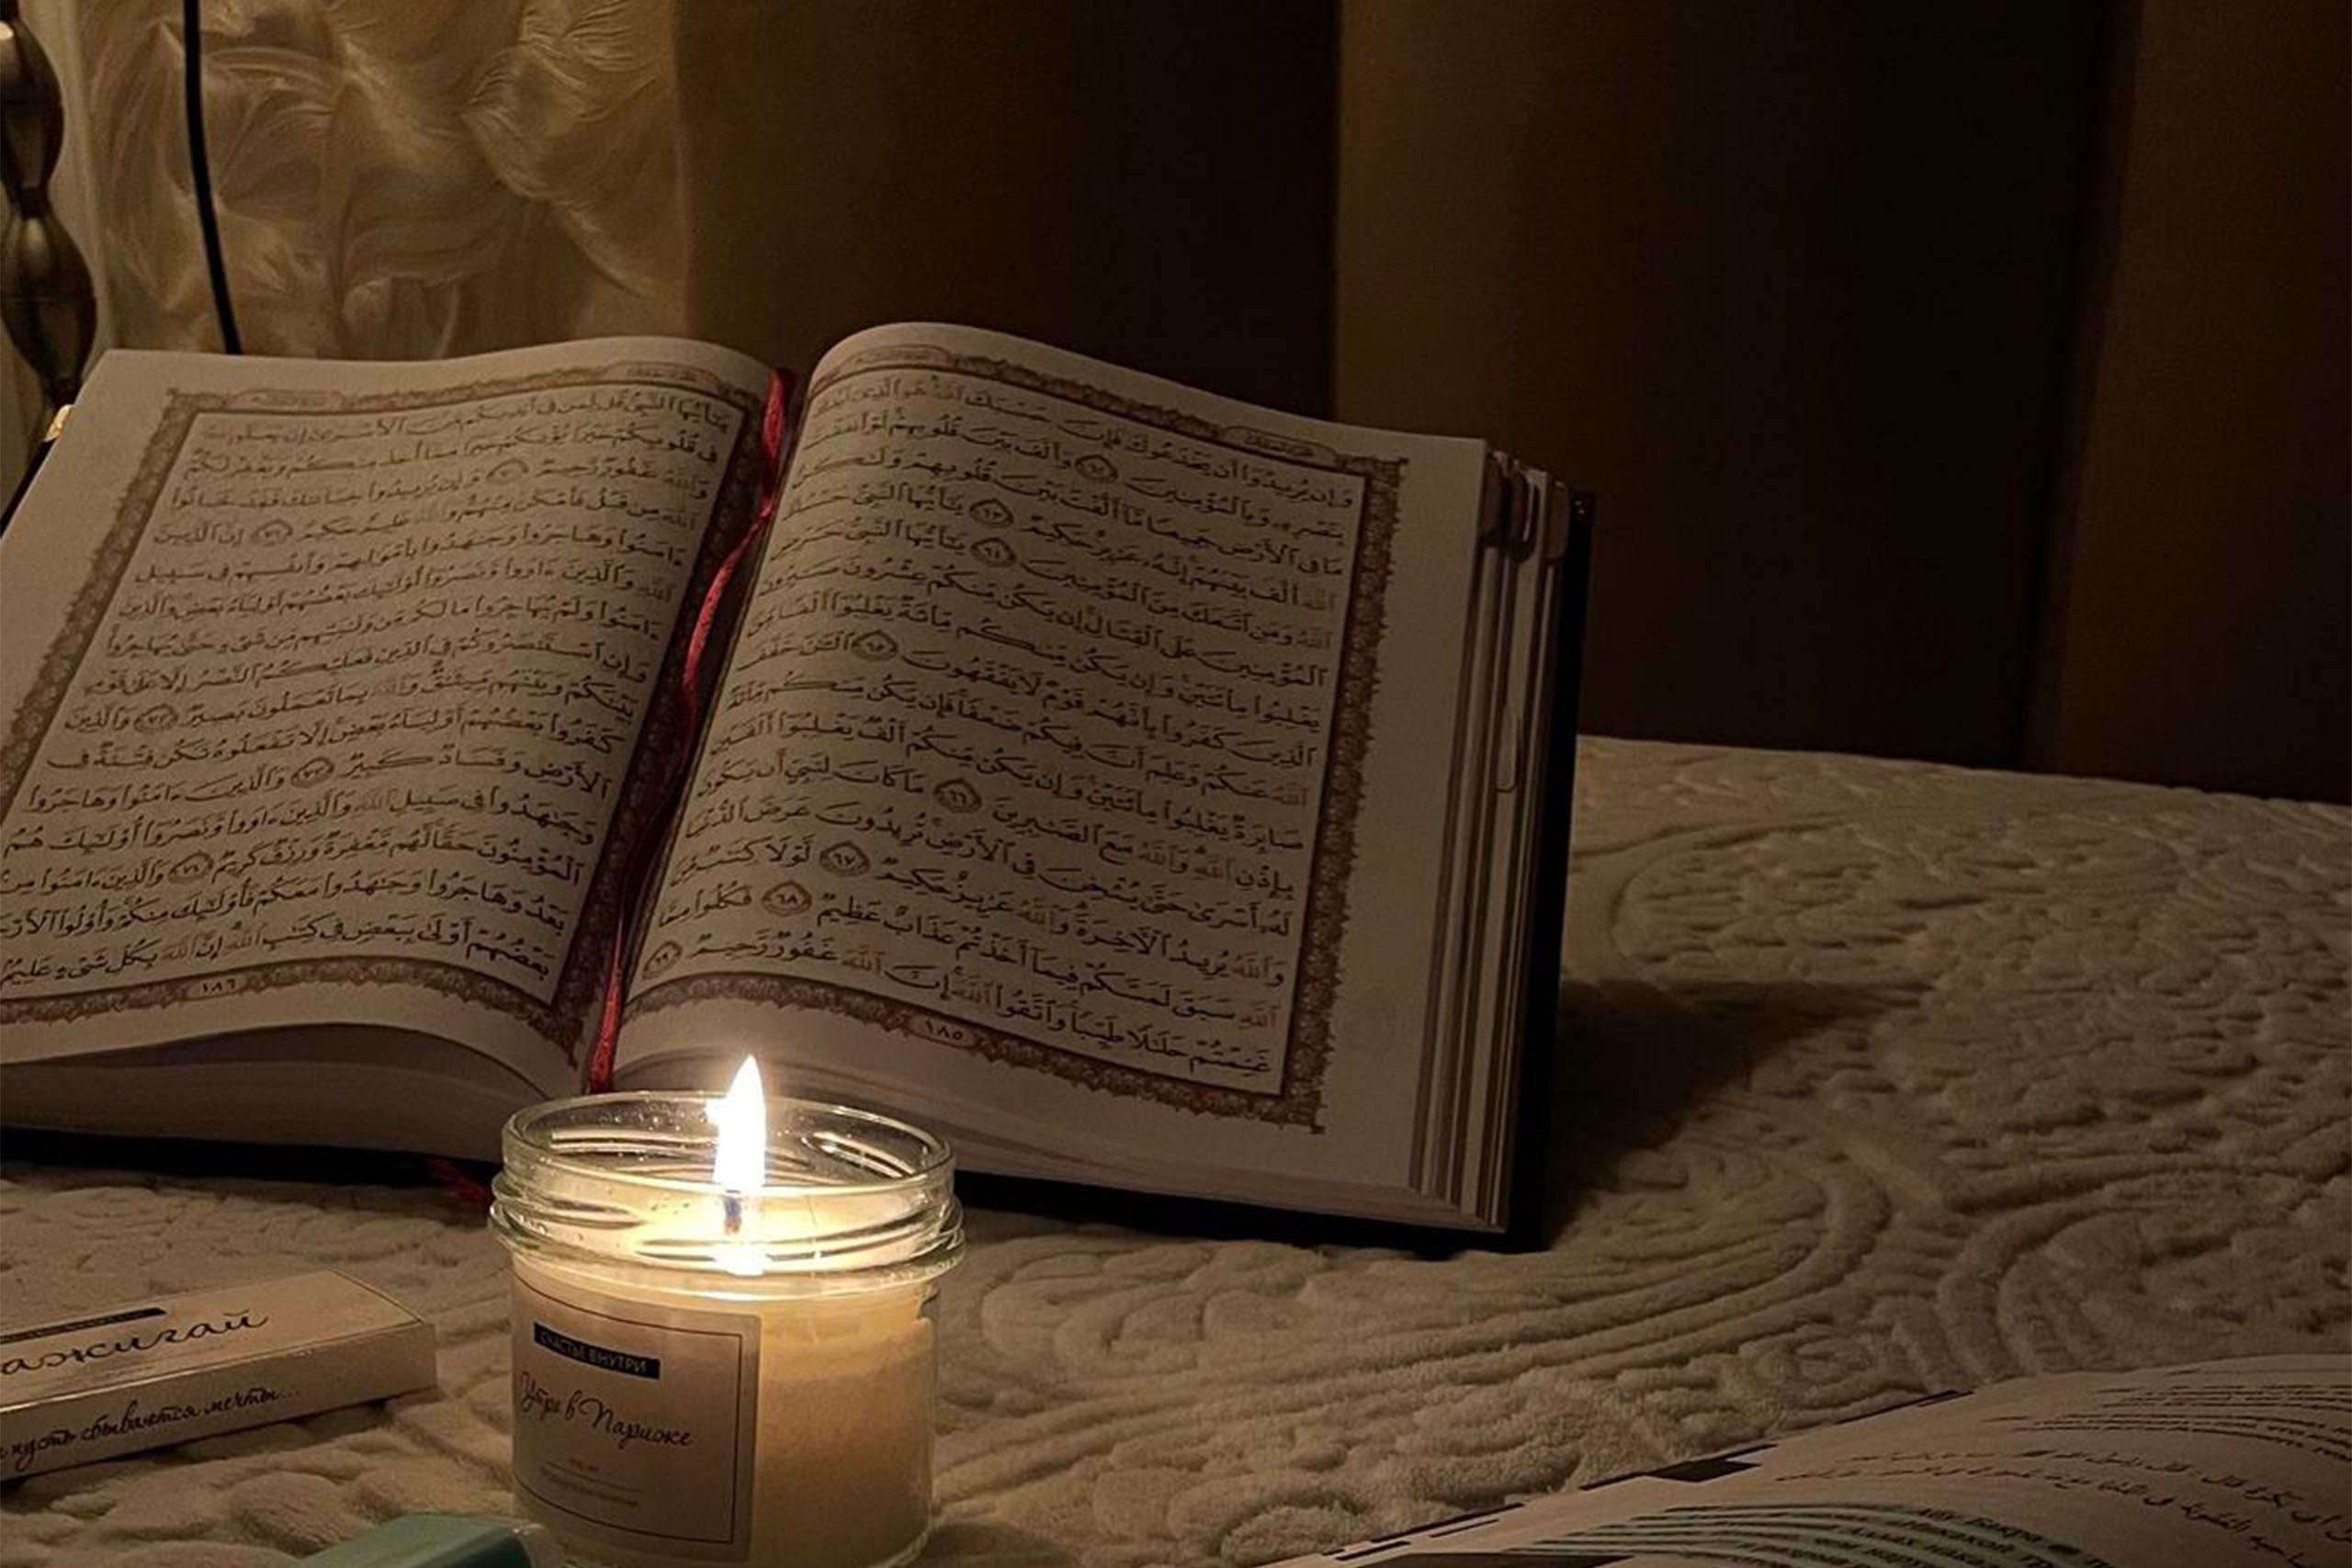 وَإِن يُرِيدُوٓاْ أَن يَخۡدَعُوكَ فَإِنَّ حَسۡبَكَ ٱللَّهُۚ هُوَ ٱلَّذِيٓ أَيَّدَكَ
بِنَصۡرِهِۦ وَبِٱلۡمُؤۡمِنِينَ ٦٢ وَأَلَّفَ بَيۡنَ قُلُوبِهِمۡۚ لَوۡ أَنفَقۡتَ
مَا فِي ٱلۡأَرۡضِ جَمِيعٗا مَّآ أَلَّفۡتَ بَيۡنَ قُلُوبِهِمۡ وَلَٰكِنَّ
ٱللَّهَ أَلَّفَ بَيۡنَهُمۡۚ إِنَّهُۥ عَزِيزٌ حَكِيمٞ ٦٣ يَٰٓأَيُّهَا ٱلنَّبِيُّ حَسۡبُكَ
ٱللَّهُ وَمَنِ ٱتَّبَعَكَ مِنَ ٱلۡمُؤۡمِنِينَ ٦٤ يَٰٓأَيُّهَا ٱلنَّبِيُّ حَرِّضِ
ٱلۡمُؤۡمِنِينَ عَلَى ٱلۡقِتَالِۚ إِن يَكُن مِّنكُمۡ عِشۡرُونَ صَٰبِرُونَ
يَغۡلِبُواْ مِاْئَتَيۡنِۚ وَإِن يَكُن مِّنكُم مِّاْئَةٞ يَغۡلِبُوٓاْ أَلۡفٗا مِّنَ
ٱلَّذِينَ كَفَرُواْ بِأَنَّهُمۡ قَوۡمٞ لَّا يَفۡقَهُونَ ٦٥ ٱلۡـَٰٔنَ خَفَّفَ
ٱللَّهُ عَنكُمۡ وَعَلِمَ أَنَّ فِيكُمۡ ضَعۡفٗاۚ فَإِن يَكُن مِّنكُم مِّاْئَةٞ
صَابِرَةٞ يَغۡلِبُواْ مِاْئَتَيۡنِۚ وَإِن يَكُن مِّنكُمۡ أَلۡفٞ يَغۡلِبُوٓاْ أَلۡفَيۡنِ
بِإِذۡنِ ٱللَّهِۗ وَٱللَّهُ مَعَ ٱلصَّٰبِرِينَ ٦٦ مَا كَانَ لِنَبِيٍّ أَن يَكُونَ
لَهُۥٓ أَسۡرَىٰ حَتَّىٰ يُثۡخِنَ فِي ٱلۡأَرۡضِۚ تُرِيدُونَ عَرَضَ ٱلدُّنۡيَا
وَٱللَّهُ يُرِيدُ ٱلۡأٓخِرَةَۗ وَٱللَّهُ عَزِيزٌ حَكِيمٞ ٦٧ لَّوۡلَا كِتَٰبٞ مِّنَ
ٱللَّهِ سَبَقَ لَمَسَّكُمۡ فِيمَآ أَخَذۡتُمۡ عَذَابٌ عَظِيمٞ ٦٨ فَكُلُواْ مِمَّا
غَنِمۡتُمۡ حَلَٰلٗا طَيِّبٗاۚ وَٱتَّقُواْ ٱللَّهَۚ إِنَّ ٱللَّهَ غَفُورٞ رَّحِيمٞ ٦٩
١٨٥
يَٰٓأَيُّهَا ٱلنَّبِيُّ قُل لِّمَن فِيٓ أَيۡدِيكُم مِّنَ ٱلۡأَسۡرَىٰٓ إِن يَعۡلَمِ ٱللَّهُ
فِي قُلُوبِكُمۡ خَيۡرٗا يُؤۡتِكُمۡ خَيۡرٗا مِّمَّآ أُخِذَ مِنكُمۡ وَيَغۡفِرۡ لَكُمۡۚ
وَٱللَّهُ غَفُورٞ رَّحِيمٞ ٧٠ وَإِن يُرِيدُواْ خِيَانَتَكَ فَقَدۡ خَانُواْ
ٱللَّهَ مِن قَبۡلُ فَأَمۡكَنَ مِنۡهُمۡۗ وَٱللَّهُ عَلِيمٌ حَكِيمٌ ٧١ إِنَّ ٱلَّذِينَ
ءَامَنُواْ وَهَاجَرُواْ وَجَٰهَدُواْ بِأَمۡوَٰلِهِمۡ وَأَنفُسِهِمۡ فِي سَبِيلِ
ٱللَّهِ وَٱلَّذِينَ ءَاوَواْ وَّنَصَرُوٓاْ أُوْلَٰٓئِكَ بَعۡضُهُمۡ أَوۡلِيَآءُ بَعۡضٖۚ وَٱلَّذِينَ
ءَامَنُواْ وَلَمۡ يُهَاجِرُواْ مَا لَكُم مِّن وَلَٰيَتِهِم مِّن شَيۡءٍ حَتَّىٰ يُهَاجِرُواْۚ
وَإِنِ ٱسۡتَنصَرُوكُمۡ فِي ٱلدِّينِ فَعَلَيۡكُمُ ٱلنَّصۡرُ إِلَّا عَلَىٰ قَوۡمِۭ
بَيۡنَكُمۡ وَبَيۡنَهُم مِّيثَٰقٞۗ وَٱللَّهُ بِمَا تَعۡمَلُونَ بَصِيرٞ ٧٢ وَٱلَّذِينَ
كَفَرُواْ بَعۡضُهُمۡ أَوۡلِيَآءُ بَعۡضٍۚ إِلَّا تَفۡعَلُوهُ تَكُن فِتۡنَةٞ فِي
ٱلۡأَرۡضِ وَفَسَادٞ كَبِيرٞ ٧٣ وَٱلَّذِينَ ءَامَنُواْ وَهَاجَرُواْ
وَجَٰهَدُواْ فِي سَبِيلِ ٱللَّهِ وَٱلَّذِينَ ءَاوَواْ وَّنَصَرُوٓاْ أُوْلَٰٓئِكَ هُمُ
ٱلۡمُؤۡمِنُونَ حَقّٗاۚ لَّهُم مَّغۡفِرَةٞ وَرِزۡقٞ كَرِيمٞ ٧٤ وَٱلَّذِينَ ءَامَنُواْ مِنۢ
بَعۡدُ وَهَاجَرُواْ وَجَٰهَدُواْ مَعَكُمۡ فَأُوْلَٰٓئِكَ مِنكُمۡۚ وَأُوْلُواْ
بَعۡضُهُمۡ أَوۡلَىٰ بِبَعۡضٖ فِي كِتَٰبِ ٱللَّهِۚ إِنَّ ٱللَّهَ بِكُلِّ شَيۡءٍ عَلِيمُۢ
١٨٦
ажигай
пусть сбываются мечты...
СЧАСТЬЕ ВНУТРИ
Утро в Париже
Абу Бакра